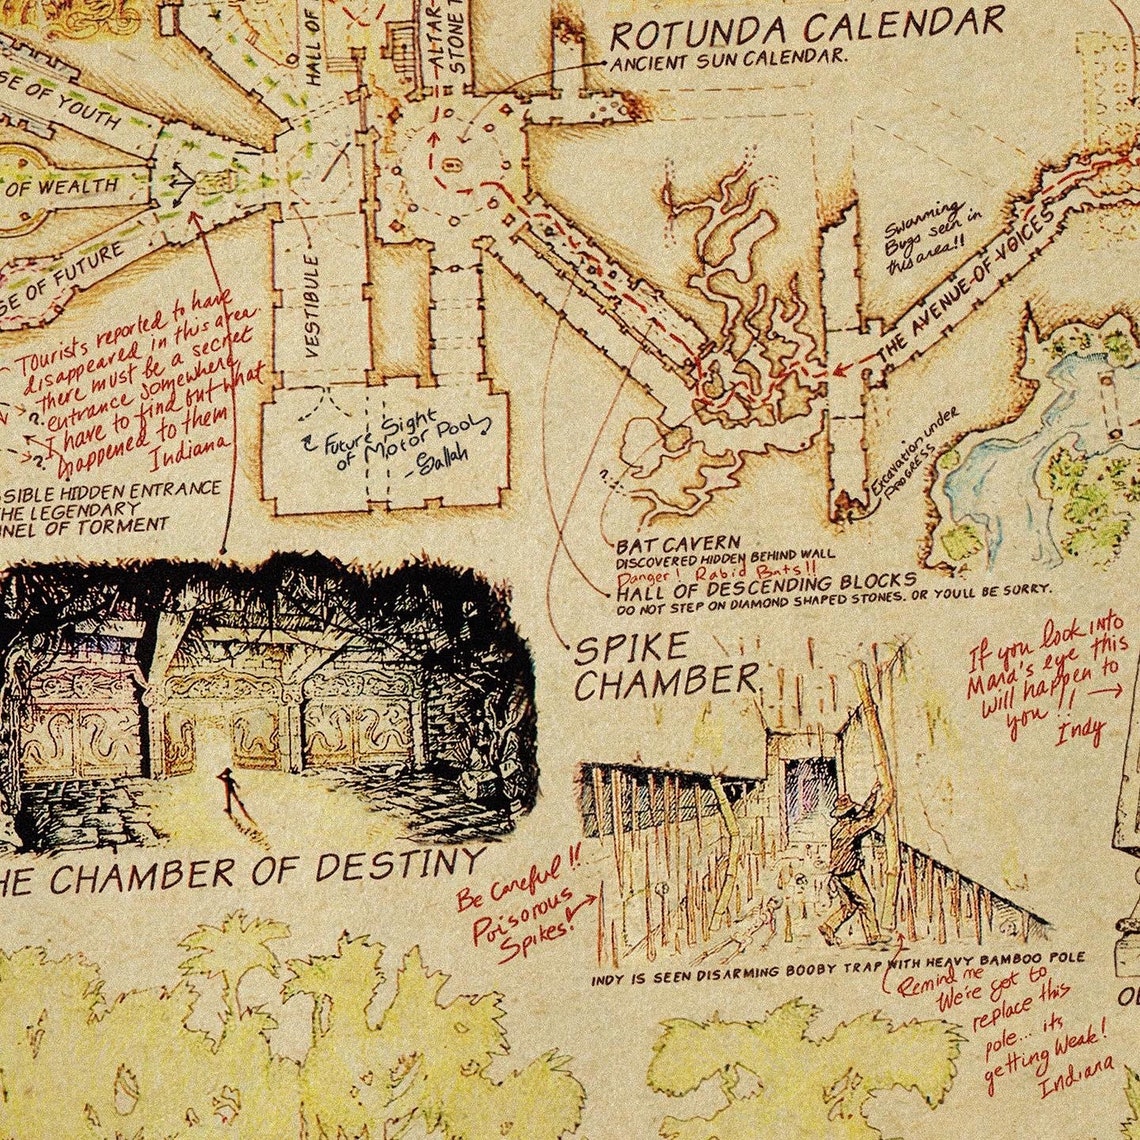 HALL OF
ALTAR
STONE T
ROTUNDA CALENDAR
ANCIENT SUN CALENDAR.
SE OF YOUTH
OF WEALTH
SE OF FUTURE
VESTIBULE
Swarming
Bugs seen in
this area!!
THE AVENUE OF VOICES
Tourists reported to have
disappeared in this area.
there must be a secret
entrance somewhere
I have to find out what
happened to them
Indiana
?
?
Future Sight
of Motor Pool
- Sallah
Excavation under
PROGRESS
?
SSIBLE HIDDEN ENTRANCE
THE LEGENDARY
NNEL OF TORMENT
BAT CAVERN
DISCOVERED HIDDEN BEHIND WALL
Danger! Rabid Bats!!
HALL OF DESCENDING BLOCKS
DO NOT STEP ON DIAMOND SHAPED STONES. OR YOU'LL BE SORRY.
SPIKE
CHAMBER
If you look into
Mara's eye this
will happen to
you!!
Indy
HE CHAMBER OF DESTINY
Be Careful!!
Poisorous
Spikes!
INDY IS SEEN DISARMING BOOBY TRAP WITH HEAVY BAMBOO POLE
Remind me
We're got to
replace this
pole... its
getting Weak!
Indiana